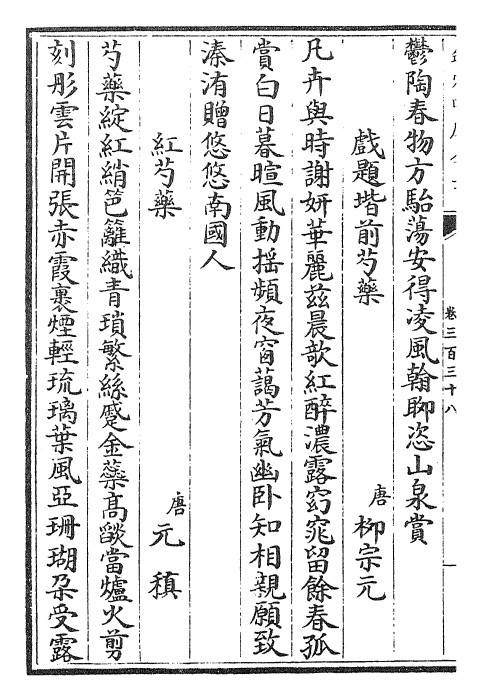 卷三百三十八
一
鬱陶春物方駘蕩安得凌風翰聊恣山泉賞
戲題堦前芍藥
唐 柳宗元
凡卉與時謝妍華麗茲晨欹紅醉濃露窈窕留餘春孤
賞白日暮暄風動搖頻夜窗藹芳氣幽卧知相親願致
溱洧贈悠悠南國人
紅芍藥
唐 元稹
芍藥綻紅綃笆籬織青瑣繁絲蹙金蘂高燄當爐火剪
刻彤雲片開張赤霞裹煙輕琉璃葉風亞珊瑚朶受露